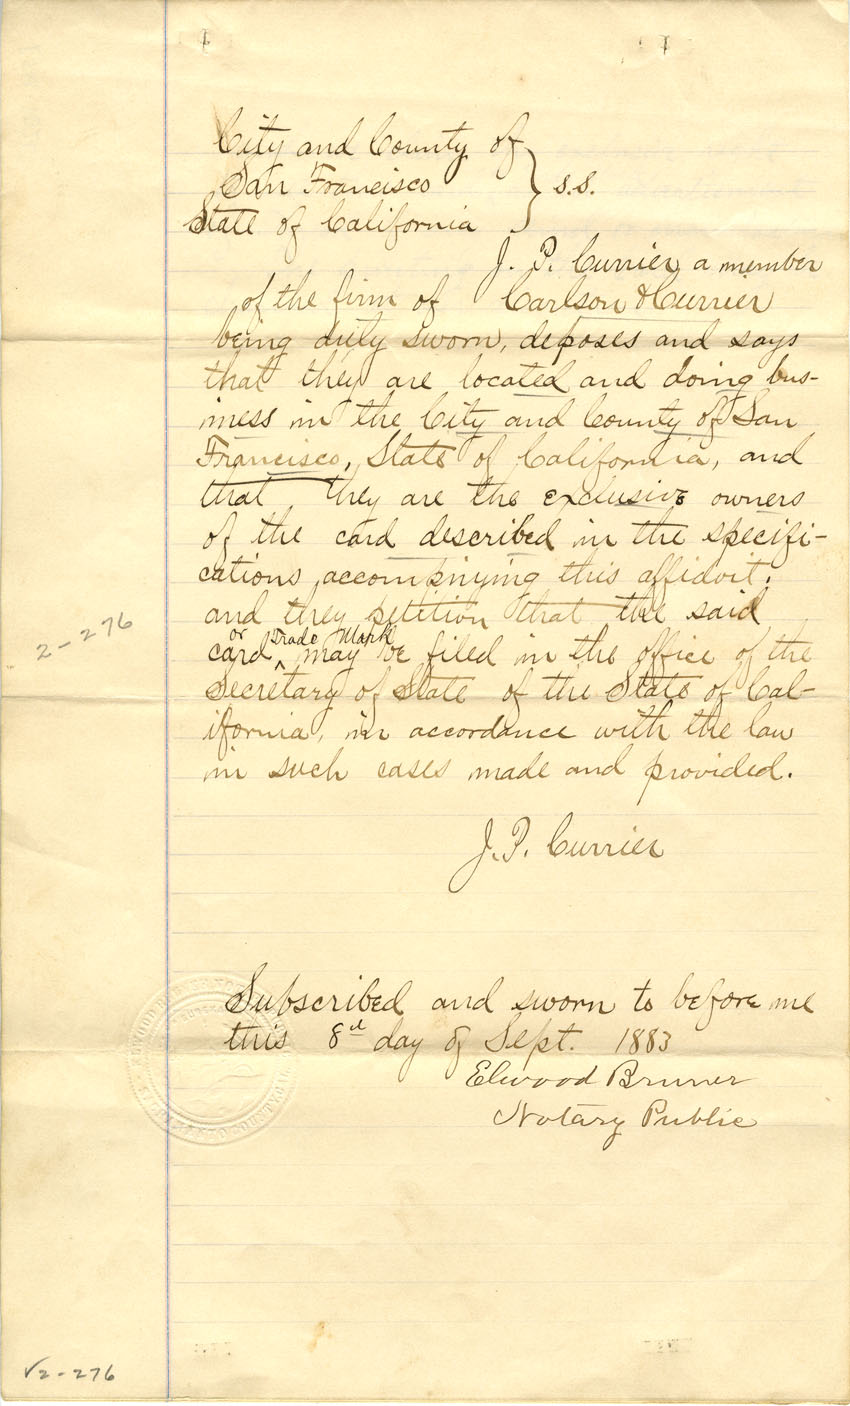 City and County of
San Francisco } s.s.
State of California
J. P. Currier a member
of the firm of Carlson & Currier
being duly sworn, deposes and says
that they are located and doing bus-
iness in the City and County of San
Francisco, State of California, and
that they are the exclusive owners
of the card described in the specifi-
cations accompinying this affidvit;
and they petition that the said
or Trade Mark
card ^ may be filed in the office of the
Secretary of State of the State of Cal-
ifornia, in accordance with the law
in such cases made and provided.
J. P. Currier
2-276
Subscribed and sworn to before me
this 8th day of Sept. 1883
Elwood Bruner
Notary Public
√2-276